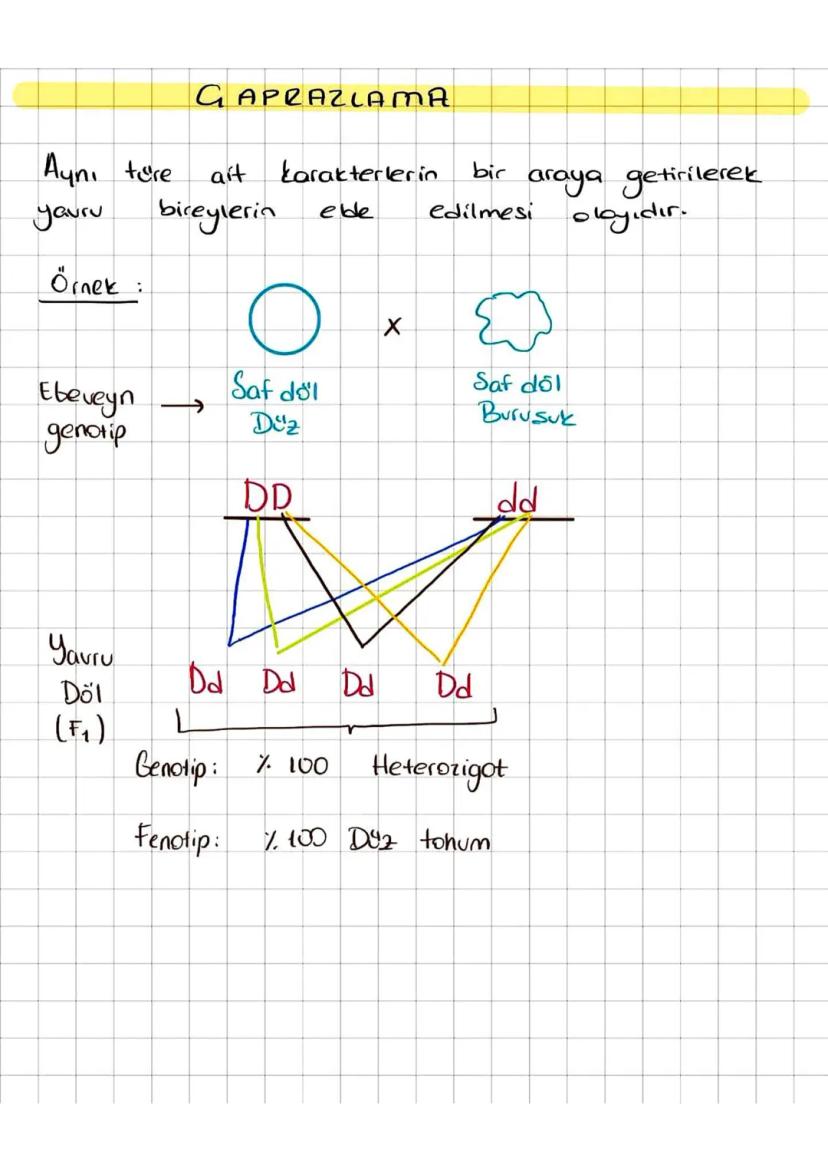 ÇAPRAZLAMA
Aynı türe ait karakterlerin bir araya getirilerek
yavru bireylerin elde edilmesi olayıdır.
Örnek :
x
Ebeveyn → Saf döl Saf döl
genotip Düz Burusuk
DD dd
Yavru
Döl Dd Dd Dd Dd
(F₁)
Genotip: % 100 Heterozigot
Fenotip: % 100 Düz tohum